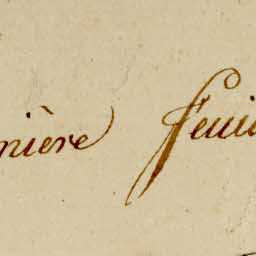 nière feui